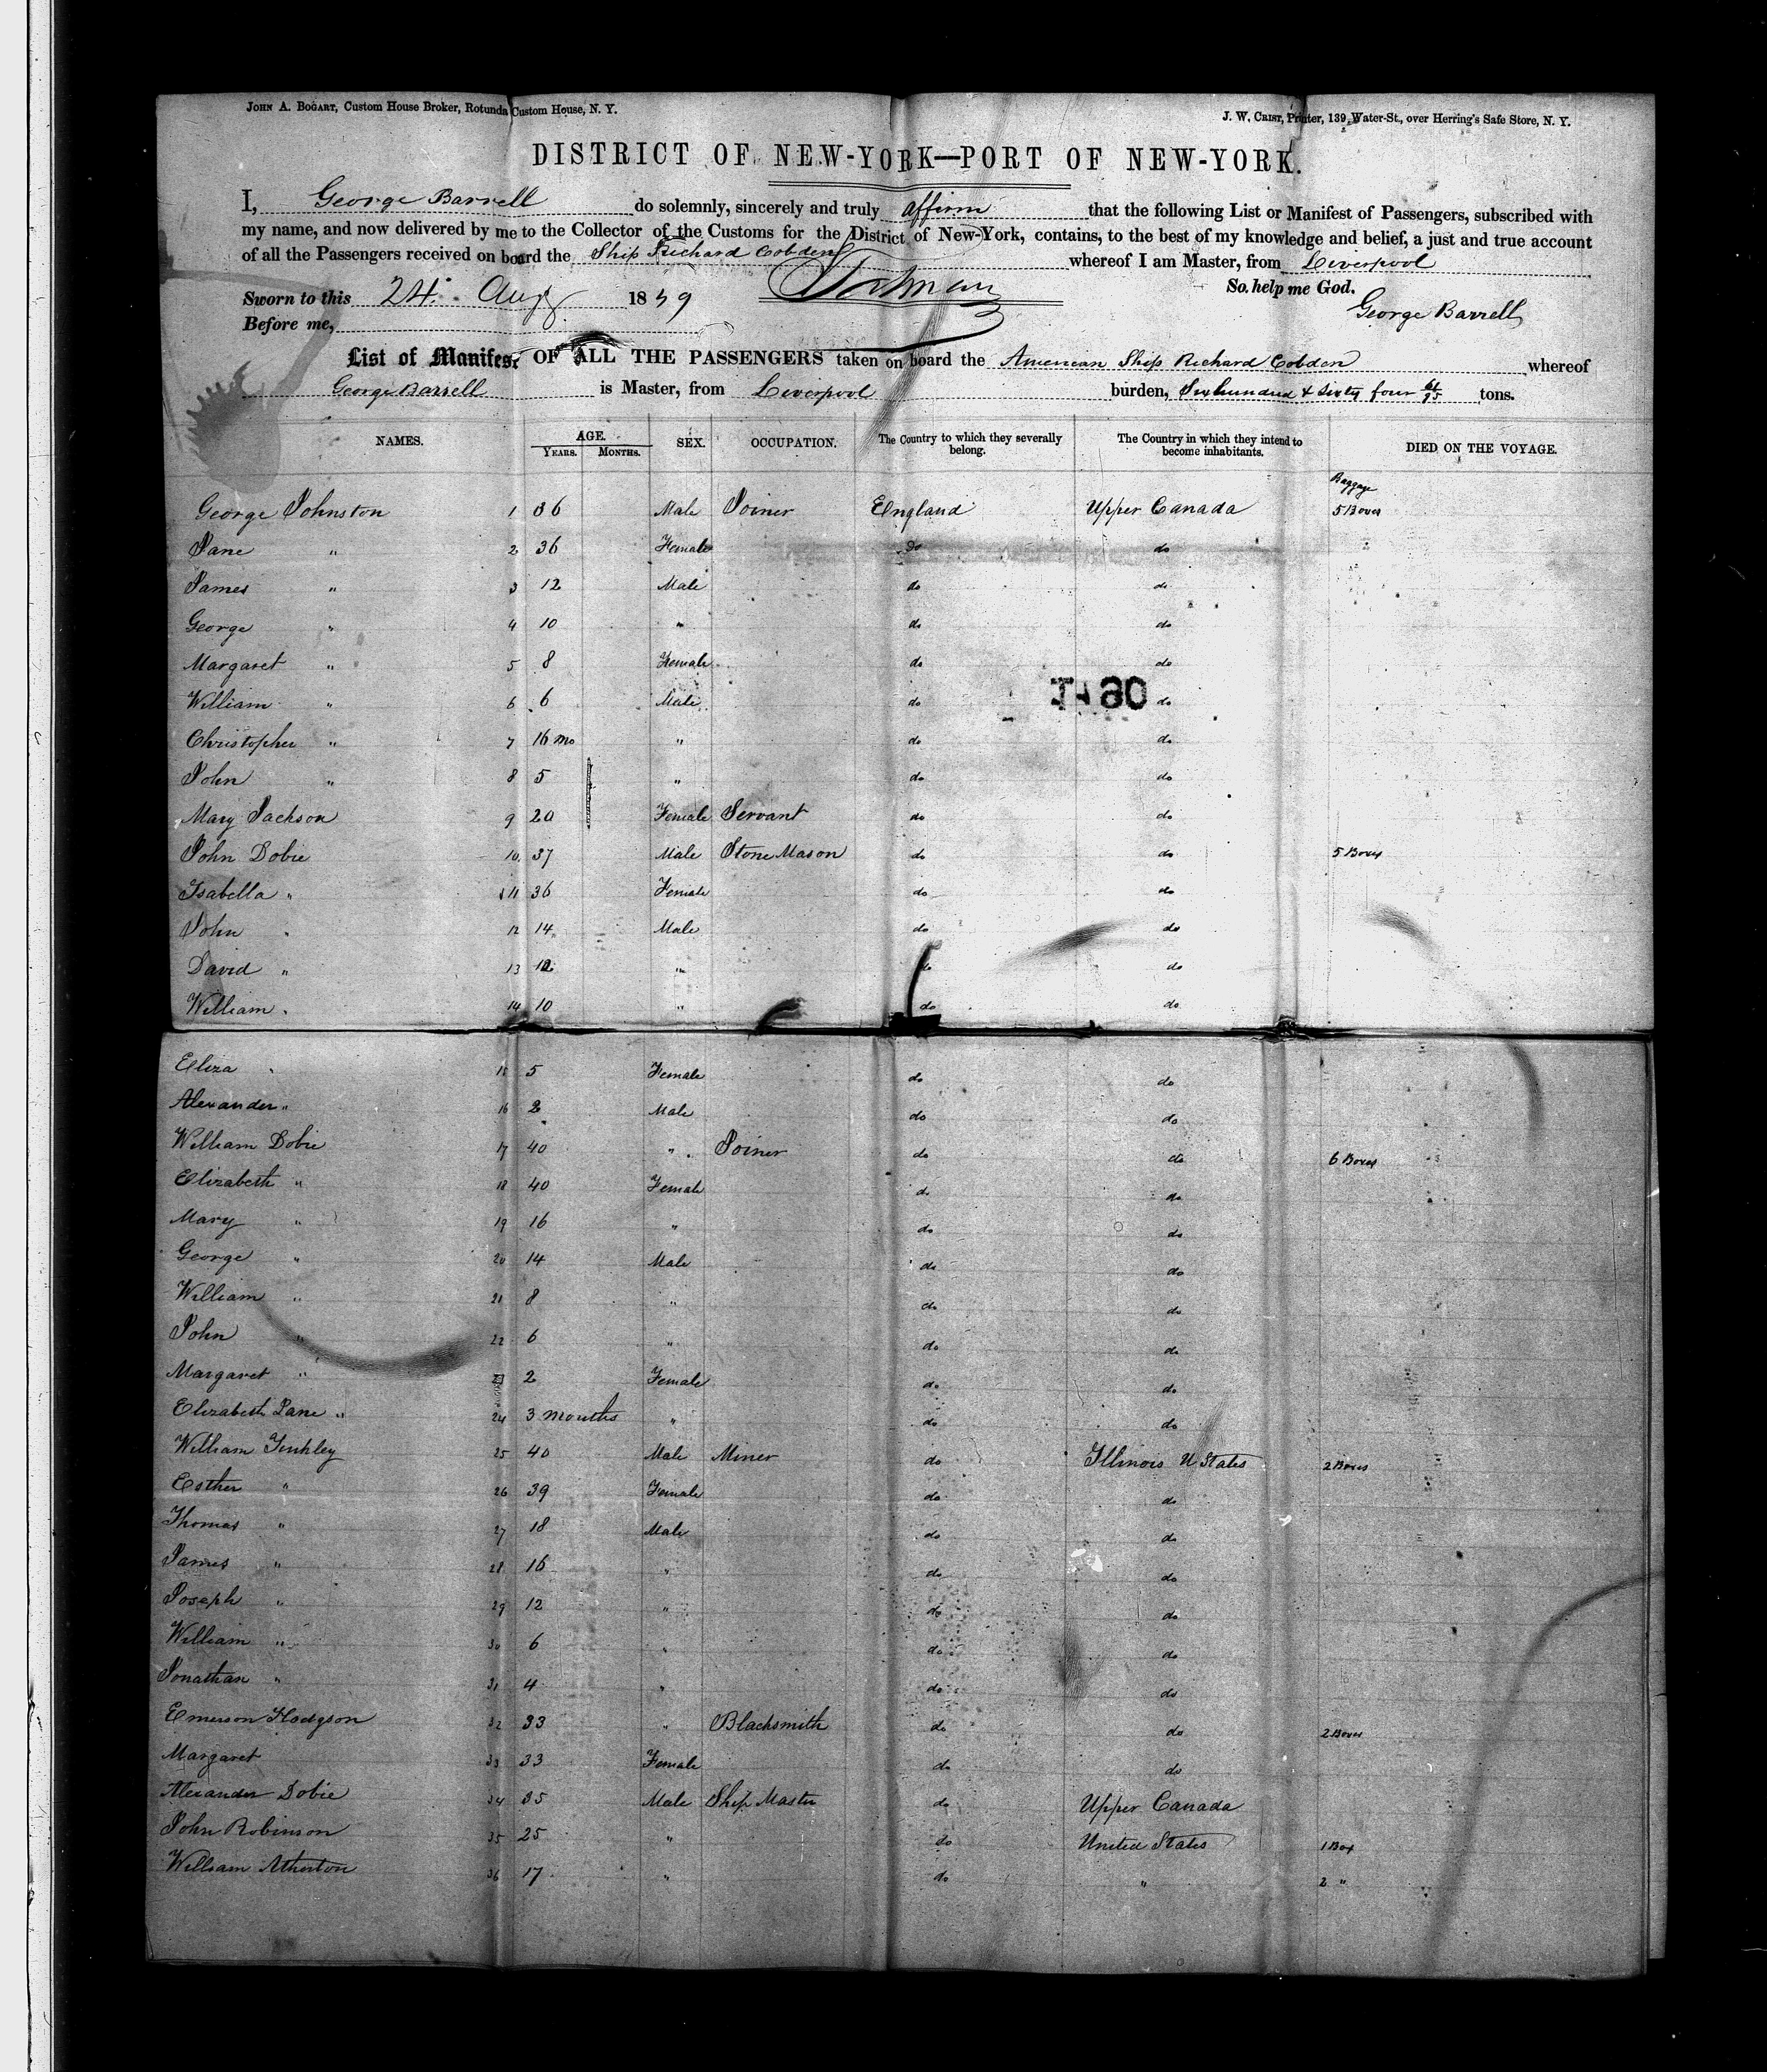 JOHN A. BOGART, Custom House Broker, Rotunda Custom House, N. Y.
J. W. CRIST, Printer, 139 Water-St., over Herring's Safe Store, N. Y.
DISTRICT OF NEW-YORK—PORT OF NEW-YORK.
I, George Barrell do solemnly, sincerely and truly affirm that the following List or Manifest of Passengers, subscribed with
my name, and now delivered by me to the Collector of the Customs for the District of New-York, contains, to the best of my knowledge and belief, a just and true account
of all the Passengers received on board the Ship Richard Cobden whereof I am Master, from Liverpool
Sworn to this 24 Aug 1849 So help me God.
Before me, George Barrell
List of Manifest OF ALL THE PASSENGERS taken on board the American Ship Richard Cobden whereof
George Barrell is Master, from Liverpool burden, Six hundred & sixty four 61/95 tons.
NAMES. AGE. YEARS. MONTHS. SEX. OCCUPATION. The Country to which they severally belong. The Country in which they intend to become inhabitants. DIED ON THE VOYAGE.
Baggage
George Johnston 1 36 Male Joiner England Upper Canada 5 Boxes
Jane " 2 36 Female do do
James " 3 12 Male do do
George " 4 10 " do do
Margaret " 5 8 Female do do
William " 6 6 Male do do
Christopher " 7 16 mo " do do
John " 8 5 " do do
Mary Jackson 9 20 Female Servant do do
John Dobie 10 37 Male Stone Mason do do 5 Boxes
Isabella " 11 36 Female do do
John " 12 14 Male do do
David " 13 12 " do do
William " 14 10 " do do
Eliza " 15 5 Female do do
Alexander " 16 2 Male do do
William Dobie 17 40 " Joiner do do 6 Boxes
Elizabeth " 18 40 Female do do
Mary " 19 16 " do do
George " 20 14 Male do do
William " 21 8 " do do
John " 22 6 " do do
Margaret " 23 2 Female do do
Elizabeth Jane " 24 3 months " do do
William 25 40 Male Miner do Illinois U States 2 Boxes
Esther " 26 39 Female do do
Thomas " 27 18 Male do do
James " 28 16 " do do
Joseph " 29 12 " do do
William " 30 6 " do do
Jonathan " 31 4 " do do
Emerson Hodgson 32 33 " Blacksmith do do 2 Boxes
Margaret 33 33 Female do do
Alexander Dobie 34 35 Male Ship Master do Upper Canada
John Robinson 35 25 " do United States 1 Box
William Atherton 36 17 " do " 2 "